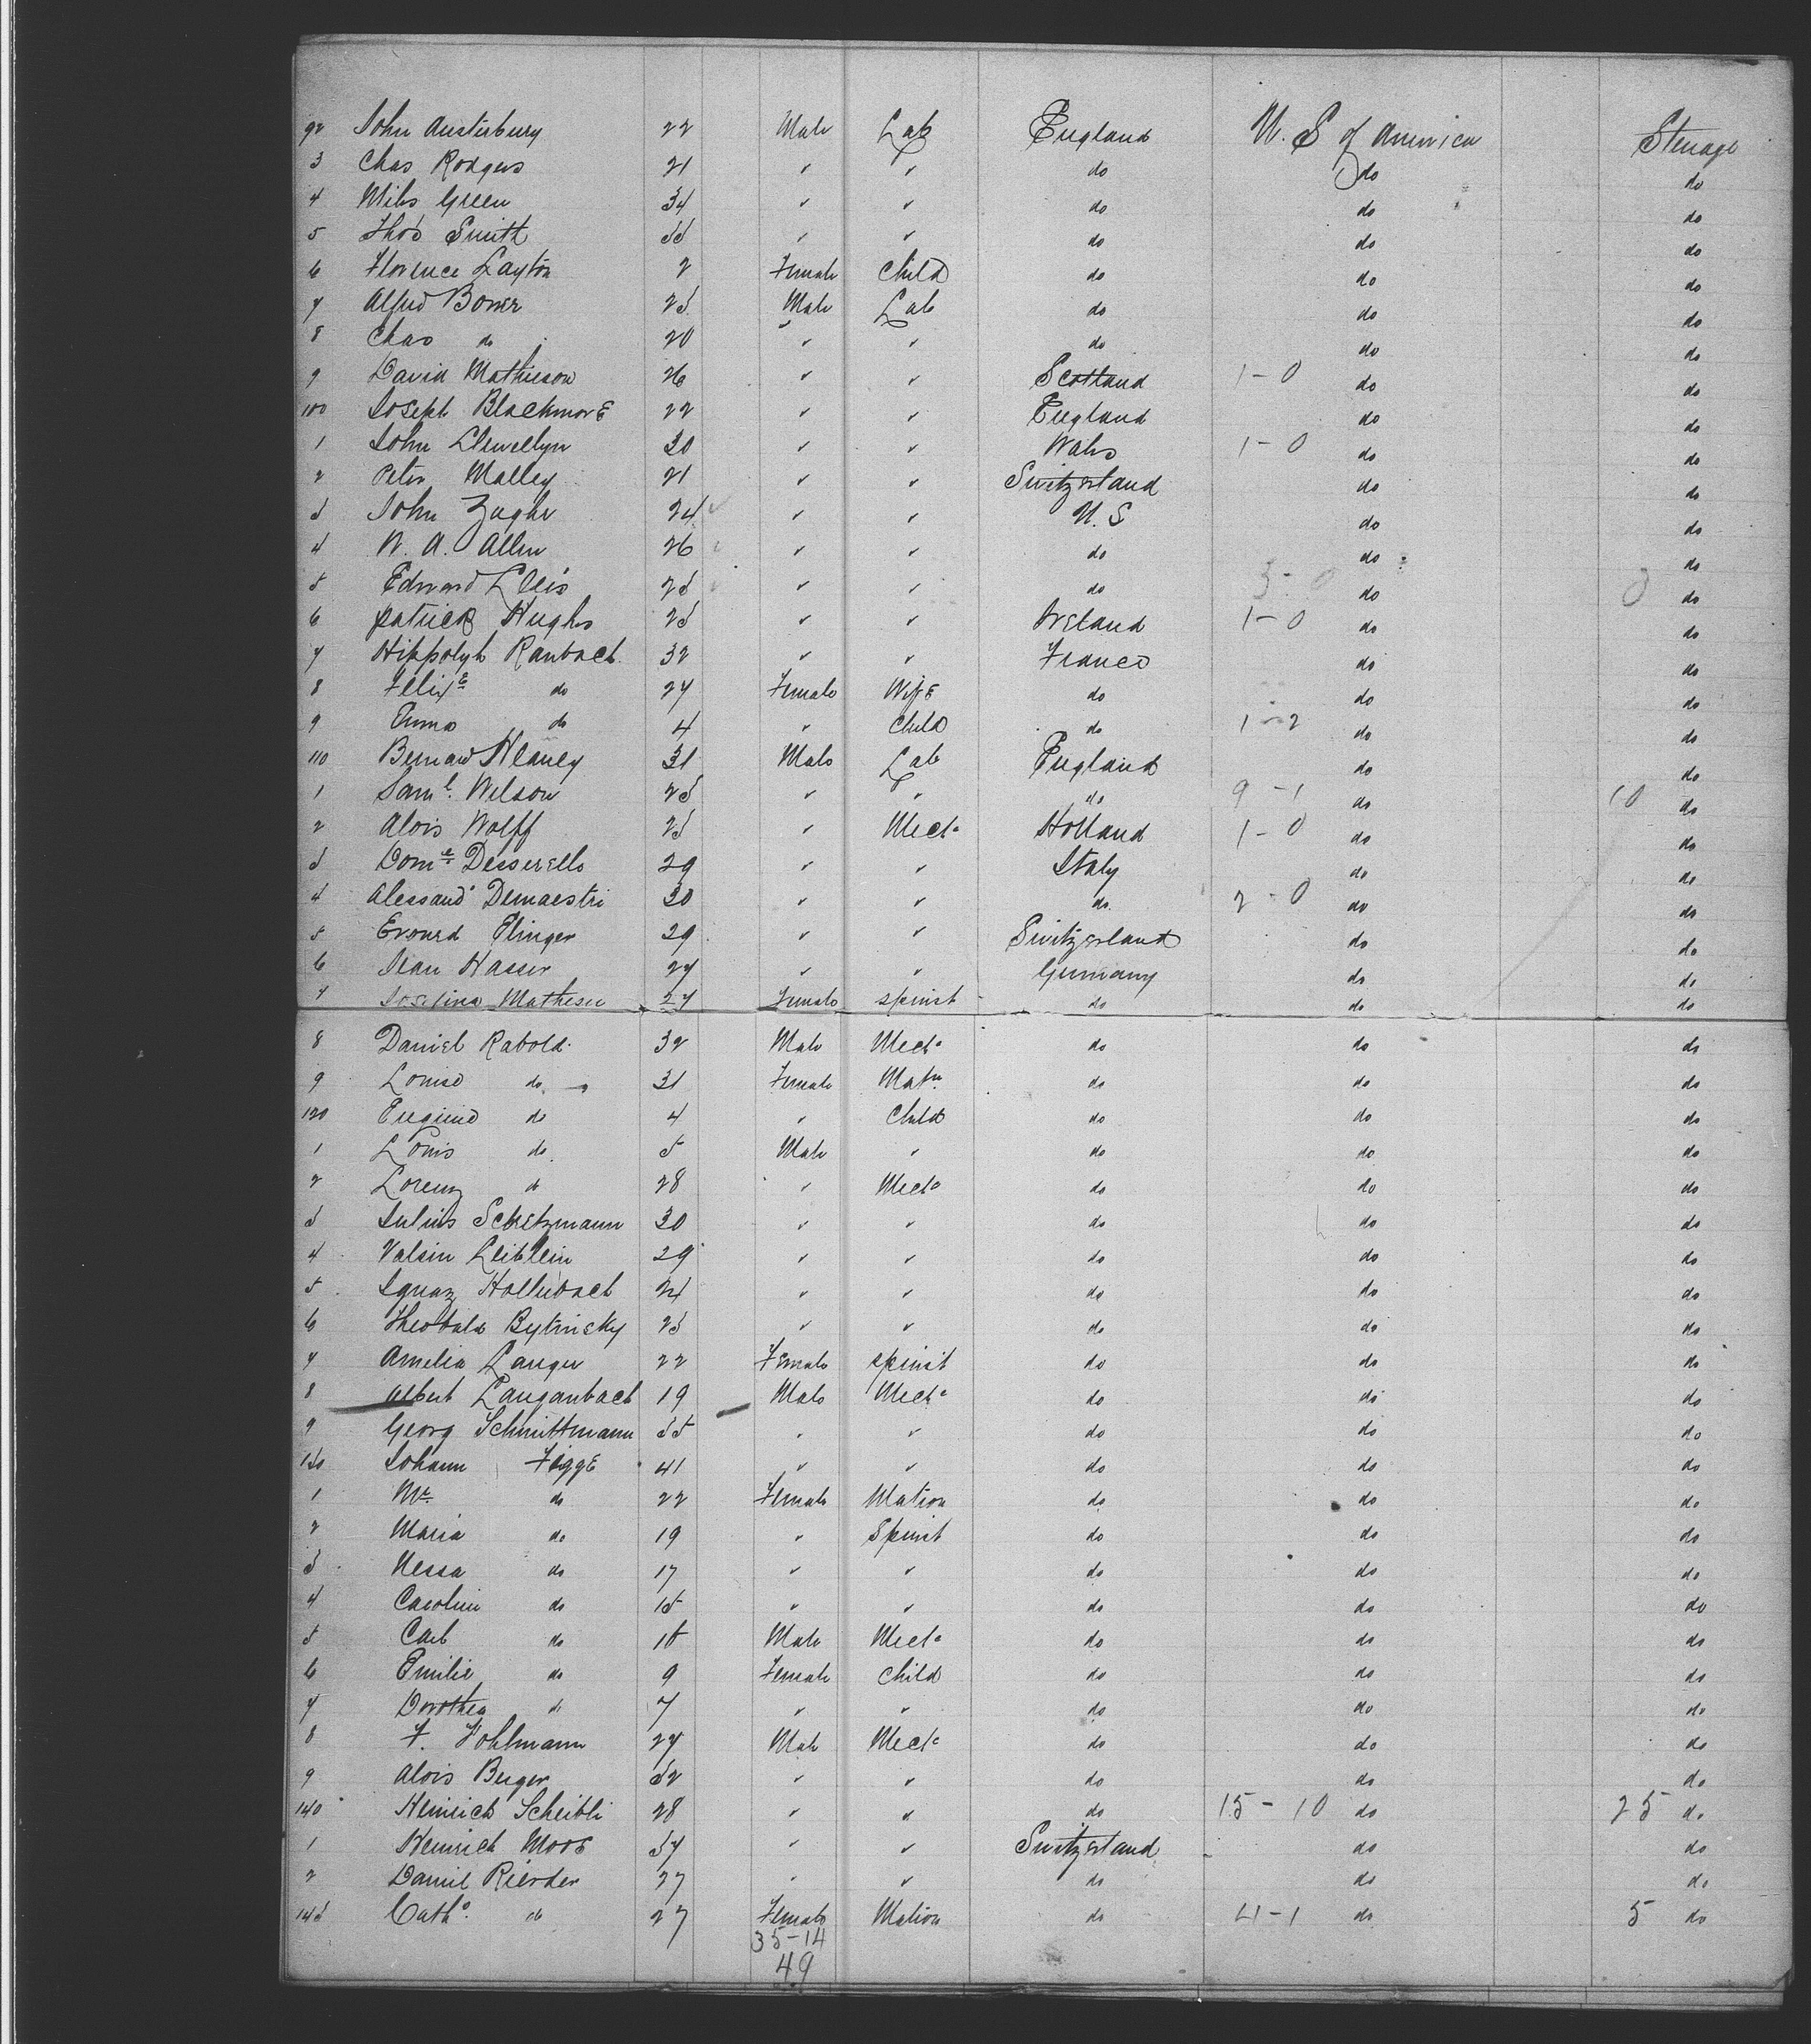 92 John Austerbury 22 Male Lab England U. S of America Steerage
3 Chas Rodgers 21 " " do do do
4 Miles Green 34 " " do do do
5 Thos Smith 33 " " do do do
6 Florence Layton 2 Female Child do do do
7 Alfred Bower 23 Male Lab do do do
8 Chas do 20 " " do do do
9 David Mathieson 26 " " Scotland 1-0 do do
100 Joseph Blackmore 22 " " England do do
1 John Llewellyn 30 " " Wales 1-0 do do
2 Peter Malley 21 " " Switzerland do do
3 John 24 " " U. S do do
4 W. A. Allen 26 " " do do do
5 Edward 23 " " do 3-0 do 0 do
6 Patrick Hughes 23 " " Ireland 1-0 do do
7 Hippolyt Raubach 32 " " France do do
8 Felixe do 27 Female Wife do do do
9 Anna do 4 " Child do 1-2 do do
110 Bernard Heaney 31 Male Lab England do do
1 Saml. Wilson 23 " " do 9-1 do 10 do
2 Alois Wolff 23 " Mech Holland 1-0 do do
3 Dome 29 " " Italy do do
4 Alessand Demaestri 30 " " do 2-0 do do
5 29 " " Switzerland do do
6 Jean Hasser 27 " " Germany do do
7 Josefina Mathesen 27 Female Spinst do do do
8 Daniel Rabold 32 Male Mech do do do
9 Louise do 31 Female Matn do do do
120 Eugenie do 4 " Child do do do
1 Louis do 5 Male " do do do
2 Lorenz do 28 " Mech do do do
3 Julius Schetzmann 30 " " do do do
4 Leiblein 29 " " do do do
5 Ignaz Hollubach 24 " " do do do
6 Theobald Bytinsky 23 " " do do do
7 Amelia Langer 22 Female Spinst do do do
8 Albert Langanbach 19 Male Mech do do do
9 Georg Schmittmann 35 " " do do do
130 Johann Figge 41 " " do do do
1 Mr. do 22 Female Matron do do do
2 Maria do 19 " Spinst do do do
3 Nessa do 17 " " do do do
4 Carolin do 15 " " do do do
5 Carl do 15 Male Mech do do do
6 Emilie do 9 Female Child do do do
7 Dorothea do 7 " " do do do
8 F. Pohlmann 27 Male Mech do do do
9 Alois Berger 32 " " do do do
140 Heinrich Scheibli 28 " " do 15-10 do 25 do
1 Heinrich Moos 37 " " Switzerland do do
2 Daniel Rierder 27 " " do do do
143 Catho. do 27 Female Matron do 4-1 do 5 do
35-14
49